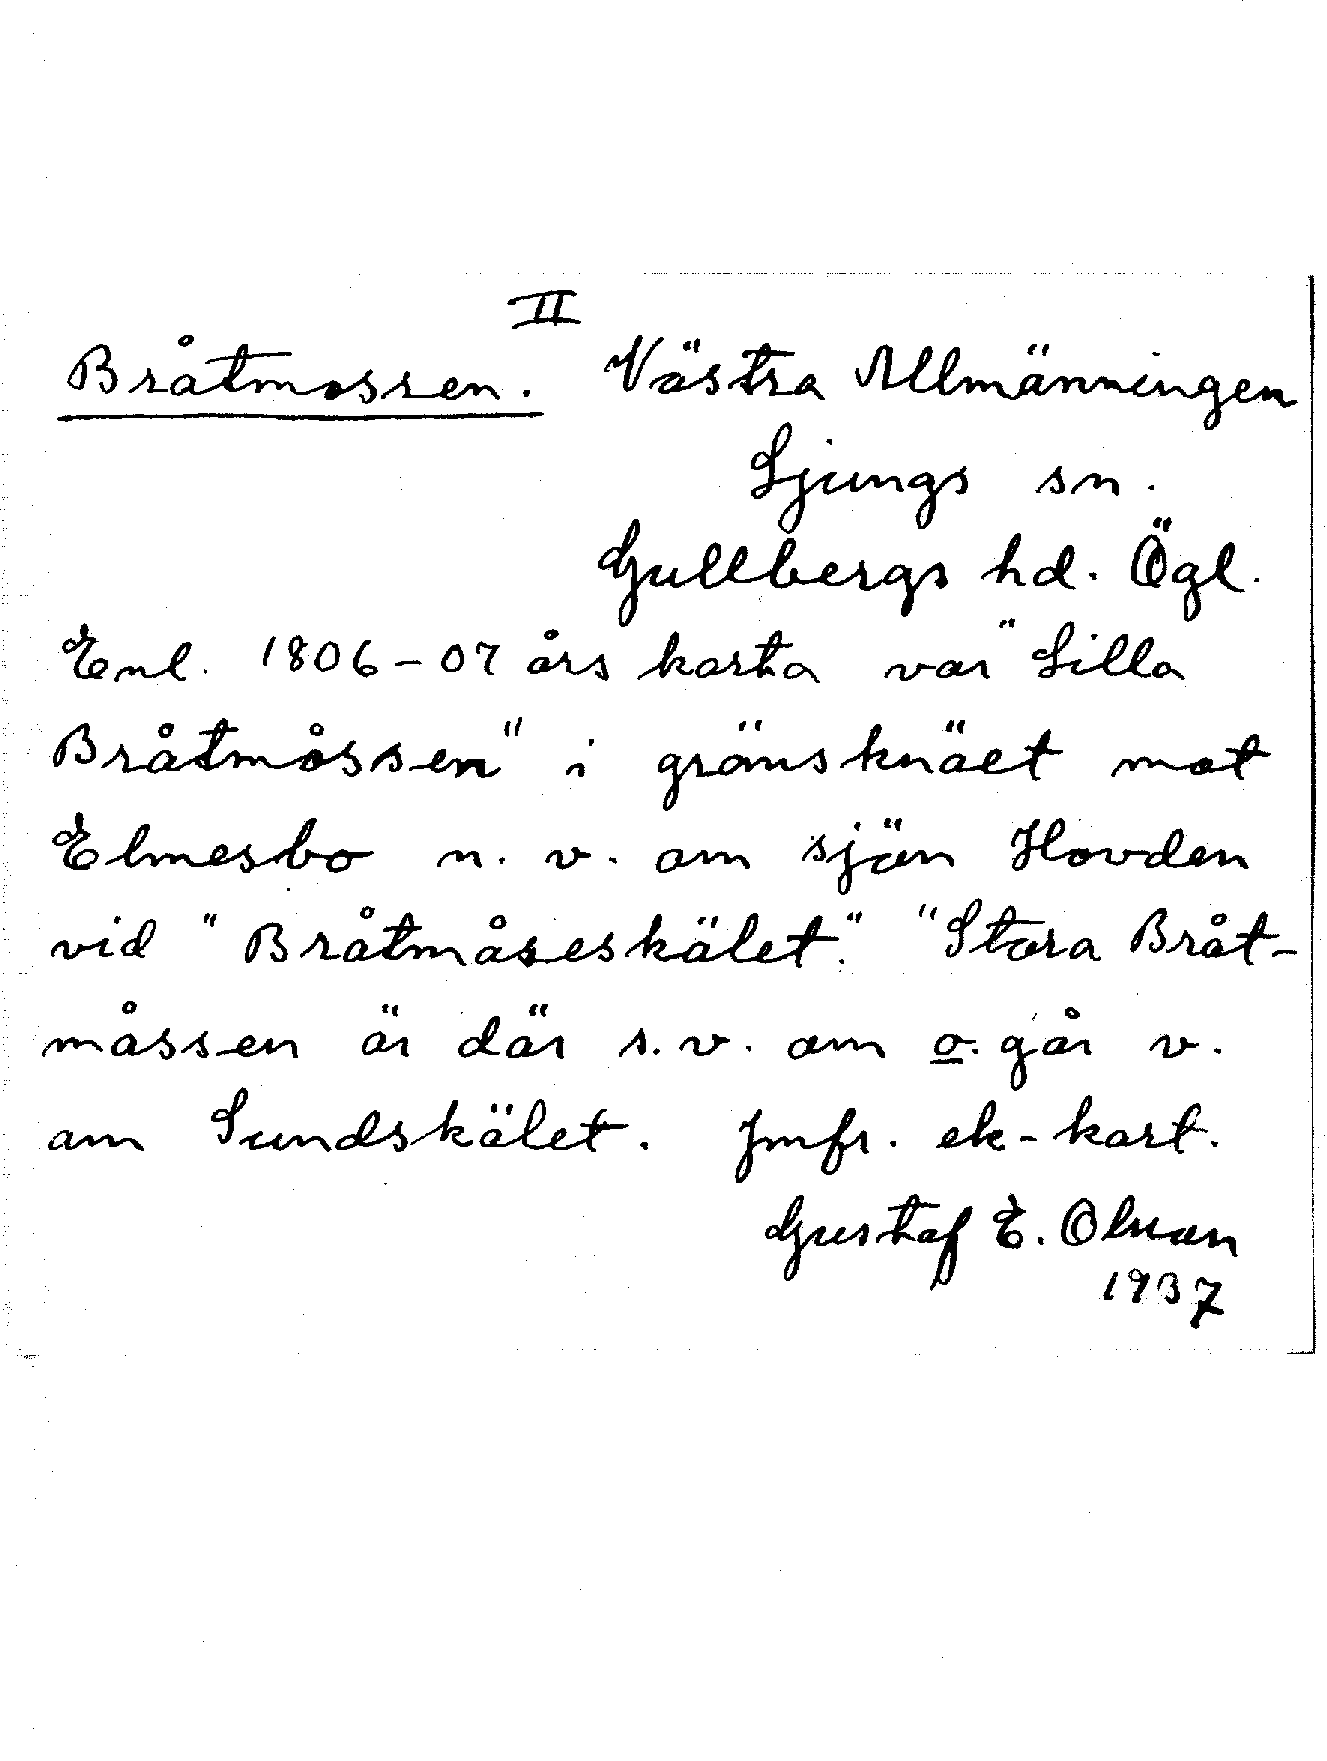 II
Bråtmossen. Västra Allmänningen
Ljungs sn.
Gullbergs hd. Ögl.
Enl. 1806-07 års karta var "Lilla
Bråtmåssen" i gränsknäet mot
Elmesbo n. v. om sjön Hovden
vid "Bråtmåseskälet." "Stora Bråt-
måssen är där s. v. om o. går v.
om Sundskälet. Jmfr. ek-kart.
Gustaf E. Olsson
1937